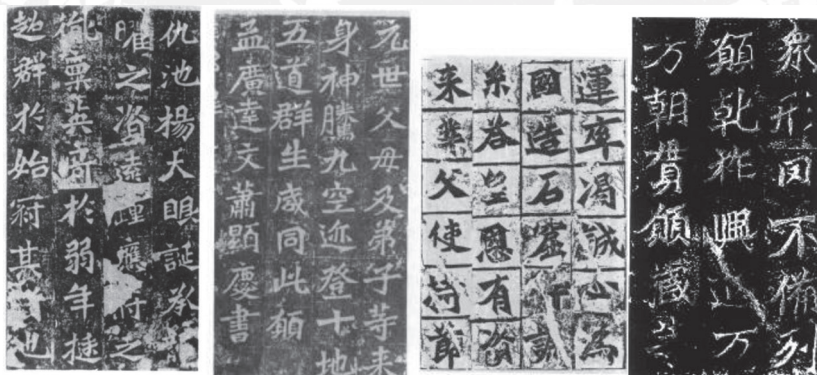 仇池楊大眼誕承龍
曜之資遠踵應符之
胤稟英奇於弱年挺
超群於始冠其也
元世父母及弟子等来
身神騰九空迹登十地
五道群生咸同此願
孟廣達文蕭顯慶書
運率渴誠心為
國造石窟
糸荅皇恩有資
来業父使持節
衆形罔不備列
願乾祚興延万
方朝貫願藏等